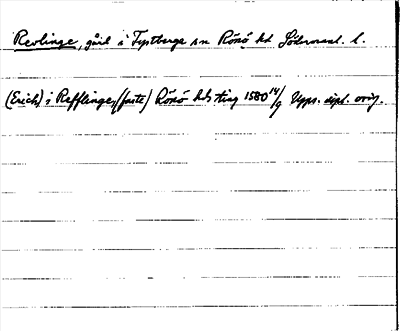 Revlinge, gård i Tystberga sn Rönö hd Södermanl. l.
(Erich) i Refflinge, (faste) Rönö hds ting 1580 14/9 Upps. dipl. orig.